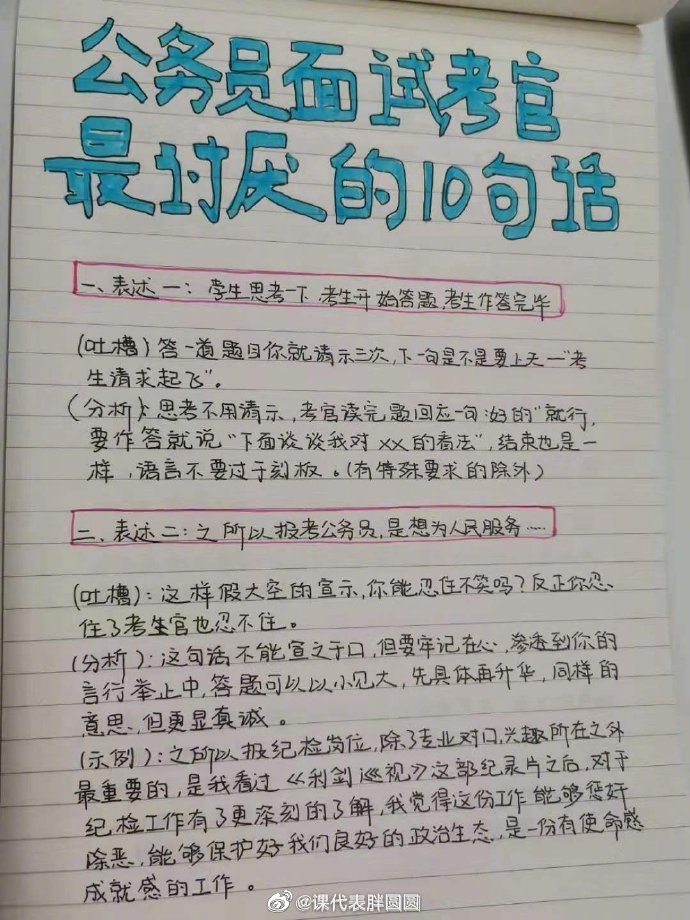 公务员面试考官
最讨厌的10句话
一、表述一：学生思考一下，考生开始答题，考生作答完毕
(吐槽)答一道题目你就请示三次，下一句是不是要上天一"考
生请求起飞"。
(分析)：思考不用请示，考官读完题回应一句：好的"就行，
要作答就说"下面谈谈我对××的看法"，结束也是一
样，语言不要过于刻板。(有特殊要求的除外)
二、表述二：之所以报考公务员，是想为人民服务……
(吐槽)：这样假大空的宣示，你能忍住不笑吗？反正你忍
住了考生官也忍不住。
(分析)：这句话不能宣之于口，但要牢记在心，渗透到你的
言行举止中，答题可以以小见大，先具体再升华，同样的
意思，但更显真诚。
(示例)：之所以报纪检岗位，除了专业对口，兴趣所在之外
最重要的，是我看过《利剑巡视》这部纪录片之后，对于
纪检工作有了更深刻的了解，我觉得这份工作能够惩奸
除恶，能够保护好我们良好的政治生态，是一份有使命感
成就感的工作。
@课代表胖圆圆